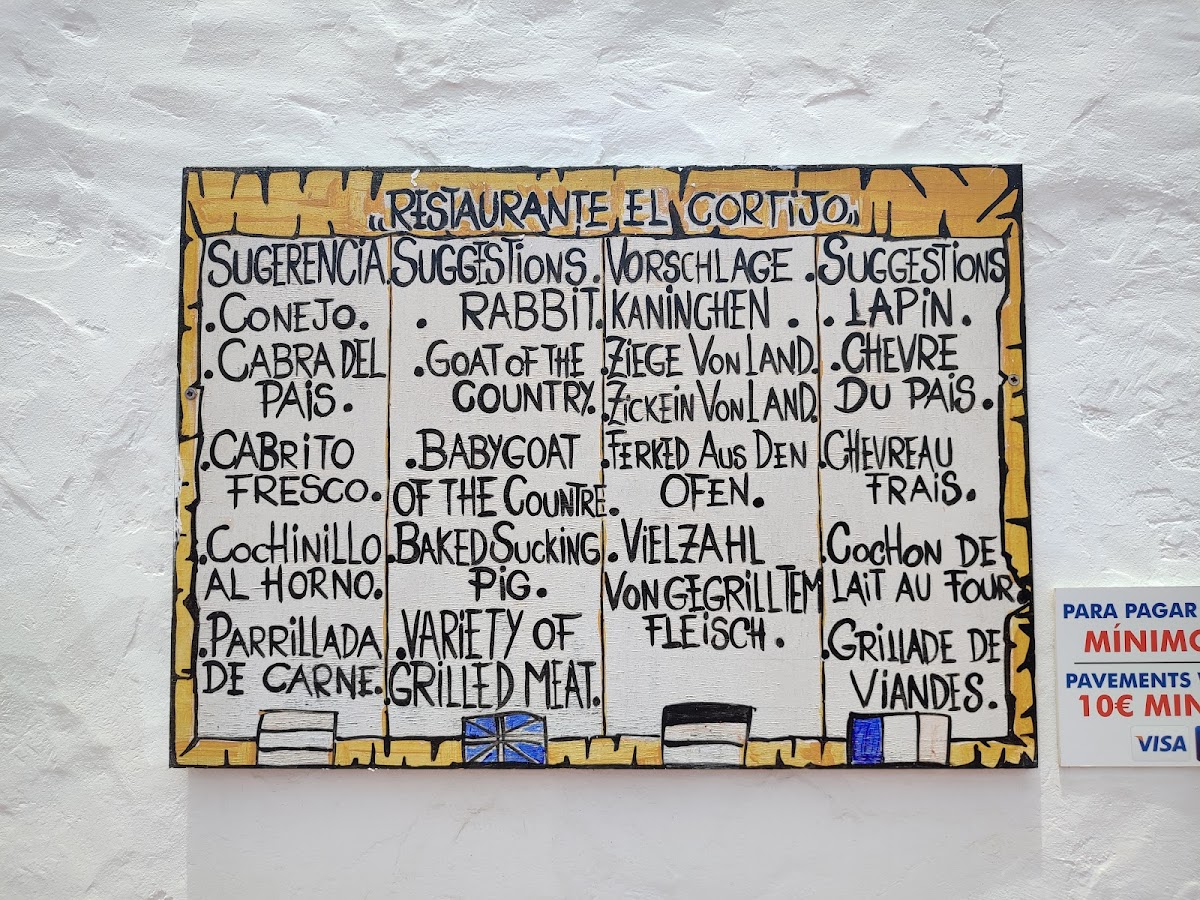 „RESTAURANTE EL CORTIJO„
SUGERENCIA
.CONEJO.
.CABRA DEL
PAIS.
.CABRITO
FRESCO.
.COCHINILLO
AL HORNO.
.PARRILLADA
DE CARNE.
SUGGESTIONS.
. RABBIT.
.GOAT OF THE
COUNTRY.
.BABYGOAT
OF THE COUNTRE.
.BAKED SUCKING
PIG.
.VARIETY OF
GRILLED MEAT.
VORSCHLAGE.
KANINCHEN.
.ZIEGE VON LAND.
.ZICKEIN VON LAND.
.FERKED AUS DEN
OFEN.
.VIELZAHL
VON GEGRILLTEM
FLEISCH.
SUGGESTIONS
.LAPIN.
.CHEVRE
DU PAIS.
.CHEVREAU
FRAIS.
.COCHON DE
LAIT AU FOUR.
.GRILLADE DE
VIANDES.
PARA PAGAR
MÍNIMO
PAVEMENTS
10€ MIN
VISA